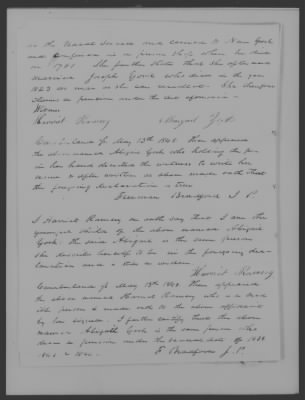 in the Naval Service and carried to New York
and confined in a prison ship where he died
in 1781. She further states that she afterward
married Joseph York who died in the year
1823 as near as she can recollect. She therefore
claims a pension under the act aforesaid
Witness
Harriet Ramsey Abigail York
Cumberland ss May 13th 1840. Then appeared
the above named Abigail York who holding the pen
in her hand desired the witness to write her
name & after written as above made oath that
the foregoing declaration is true
Freeman Bradford J. P.
I Harriet Ramsey on oath say that I am the
youngest child of the above named Abigail
York. The said Abigail is the same person
she describes herself to be in the foregoing
declaration and
Harriet Ramsey
Cumberland ss May 13th 1840. Then appeared
the above named Harriet Ramsey who is
person & made oath to the above affidavit
by her signed. I further certify that the above
named Abigail York is the same person who
drew a pension under the several acts of 1838
1843 &
F Bradford J. P.